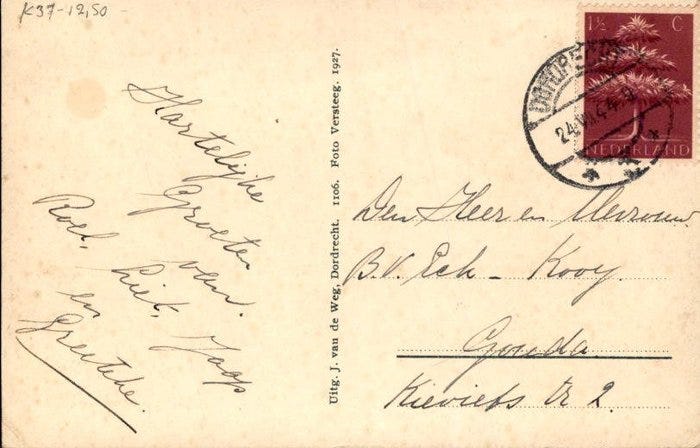 K37-12,50 -
Hartelijke
Groeten
van.
Roel, Liet, Jaap
en
Greetche.
Uitg. J. van de Weg, Dordrecht. 1106. Foto Versteeg. 1927.
1½ C
NEDERLAND
DORDRE
24.VI.44.
Den Heer en Mevrouw.
B.V. Eck - Kooy.
Gouda
Kieviets tr 2.